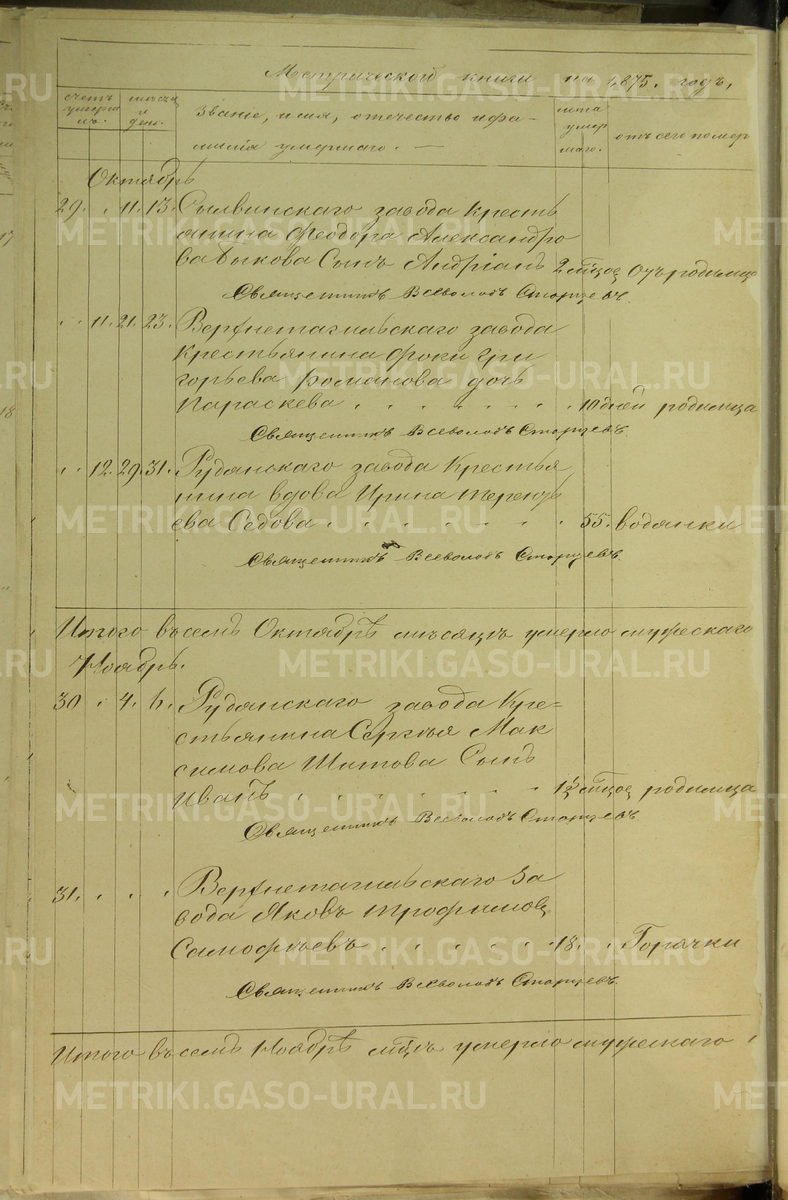 Метрической книги на 1875. годъ,
счетъ умершихъ. мѣсяц и ден. Званіе, имя, отечество и фа-
милія умершаго. — лета умер шаго. отъ чего помер
Октябрь
29. . 11. 13. Сылвинскаго завода Кресть
янина Феодора Александро
ва Быкова Сынъ Андріанъ 2 мѣсяц. Отъ родимца
Священникъ Всеволодъ Старцевъ.
. . 11. 21. 23. Верхнетагильскаго завода
Крестьянина Фоки Гри
горьева Романова дочь
Параскева . . . . . . . 10 дней родимца
Священникъ Всеволодъ Старцевъ.
. . 12. 29. 31. Рудянскаго завода Крестья
нина вдова Ирина Терентъ
ева Седова . . . . . . . . 55. водянки
Священникъ Всеволодъ Старцевъ.
Итого въ семъ Октябрѣ мѣсяцъ умерло мужескаго
Ноябрь.
30 . 4. 6. Рудянскаго завода Кре=
стьянина Сергѣя Мак
симова Шитова Сынъ
Иванъ . . . . . . . 1½ мѣсяц. родимца
Священникъ Всеволодъ Старцевъ.
31. . . . Верхнетагильскаго За
вода Яковъ Трофимовъ
Самофѣевъ . . . . . . 18. . Горячки
Священникъ Всеволодъ Старцевъ.
Итого въ семъ Ноябрѣ мцъ умерло мужескаго
METRIKI.GASO-URAL.RU